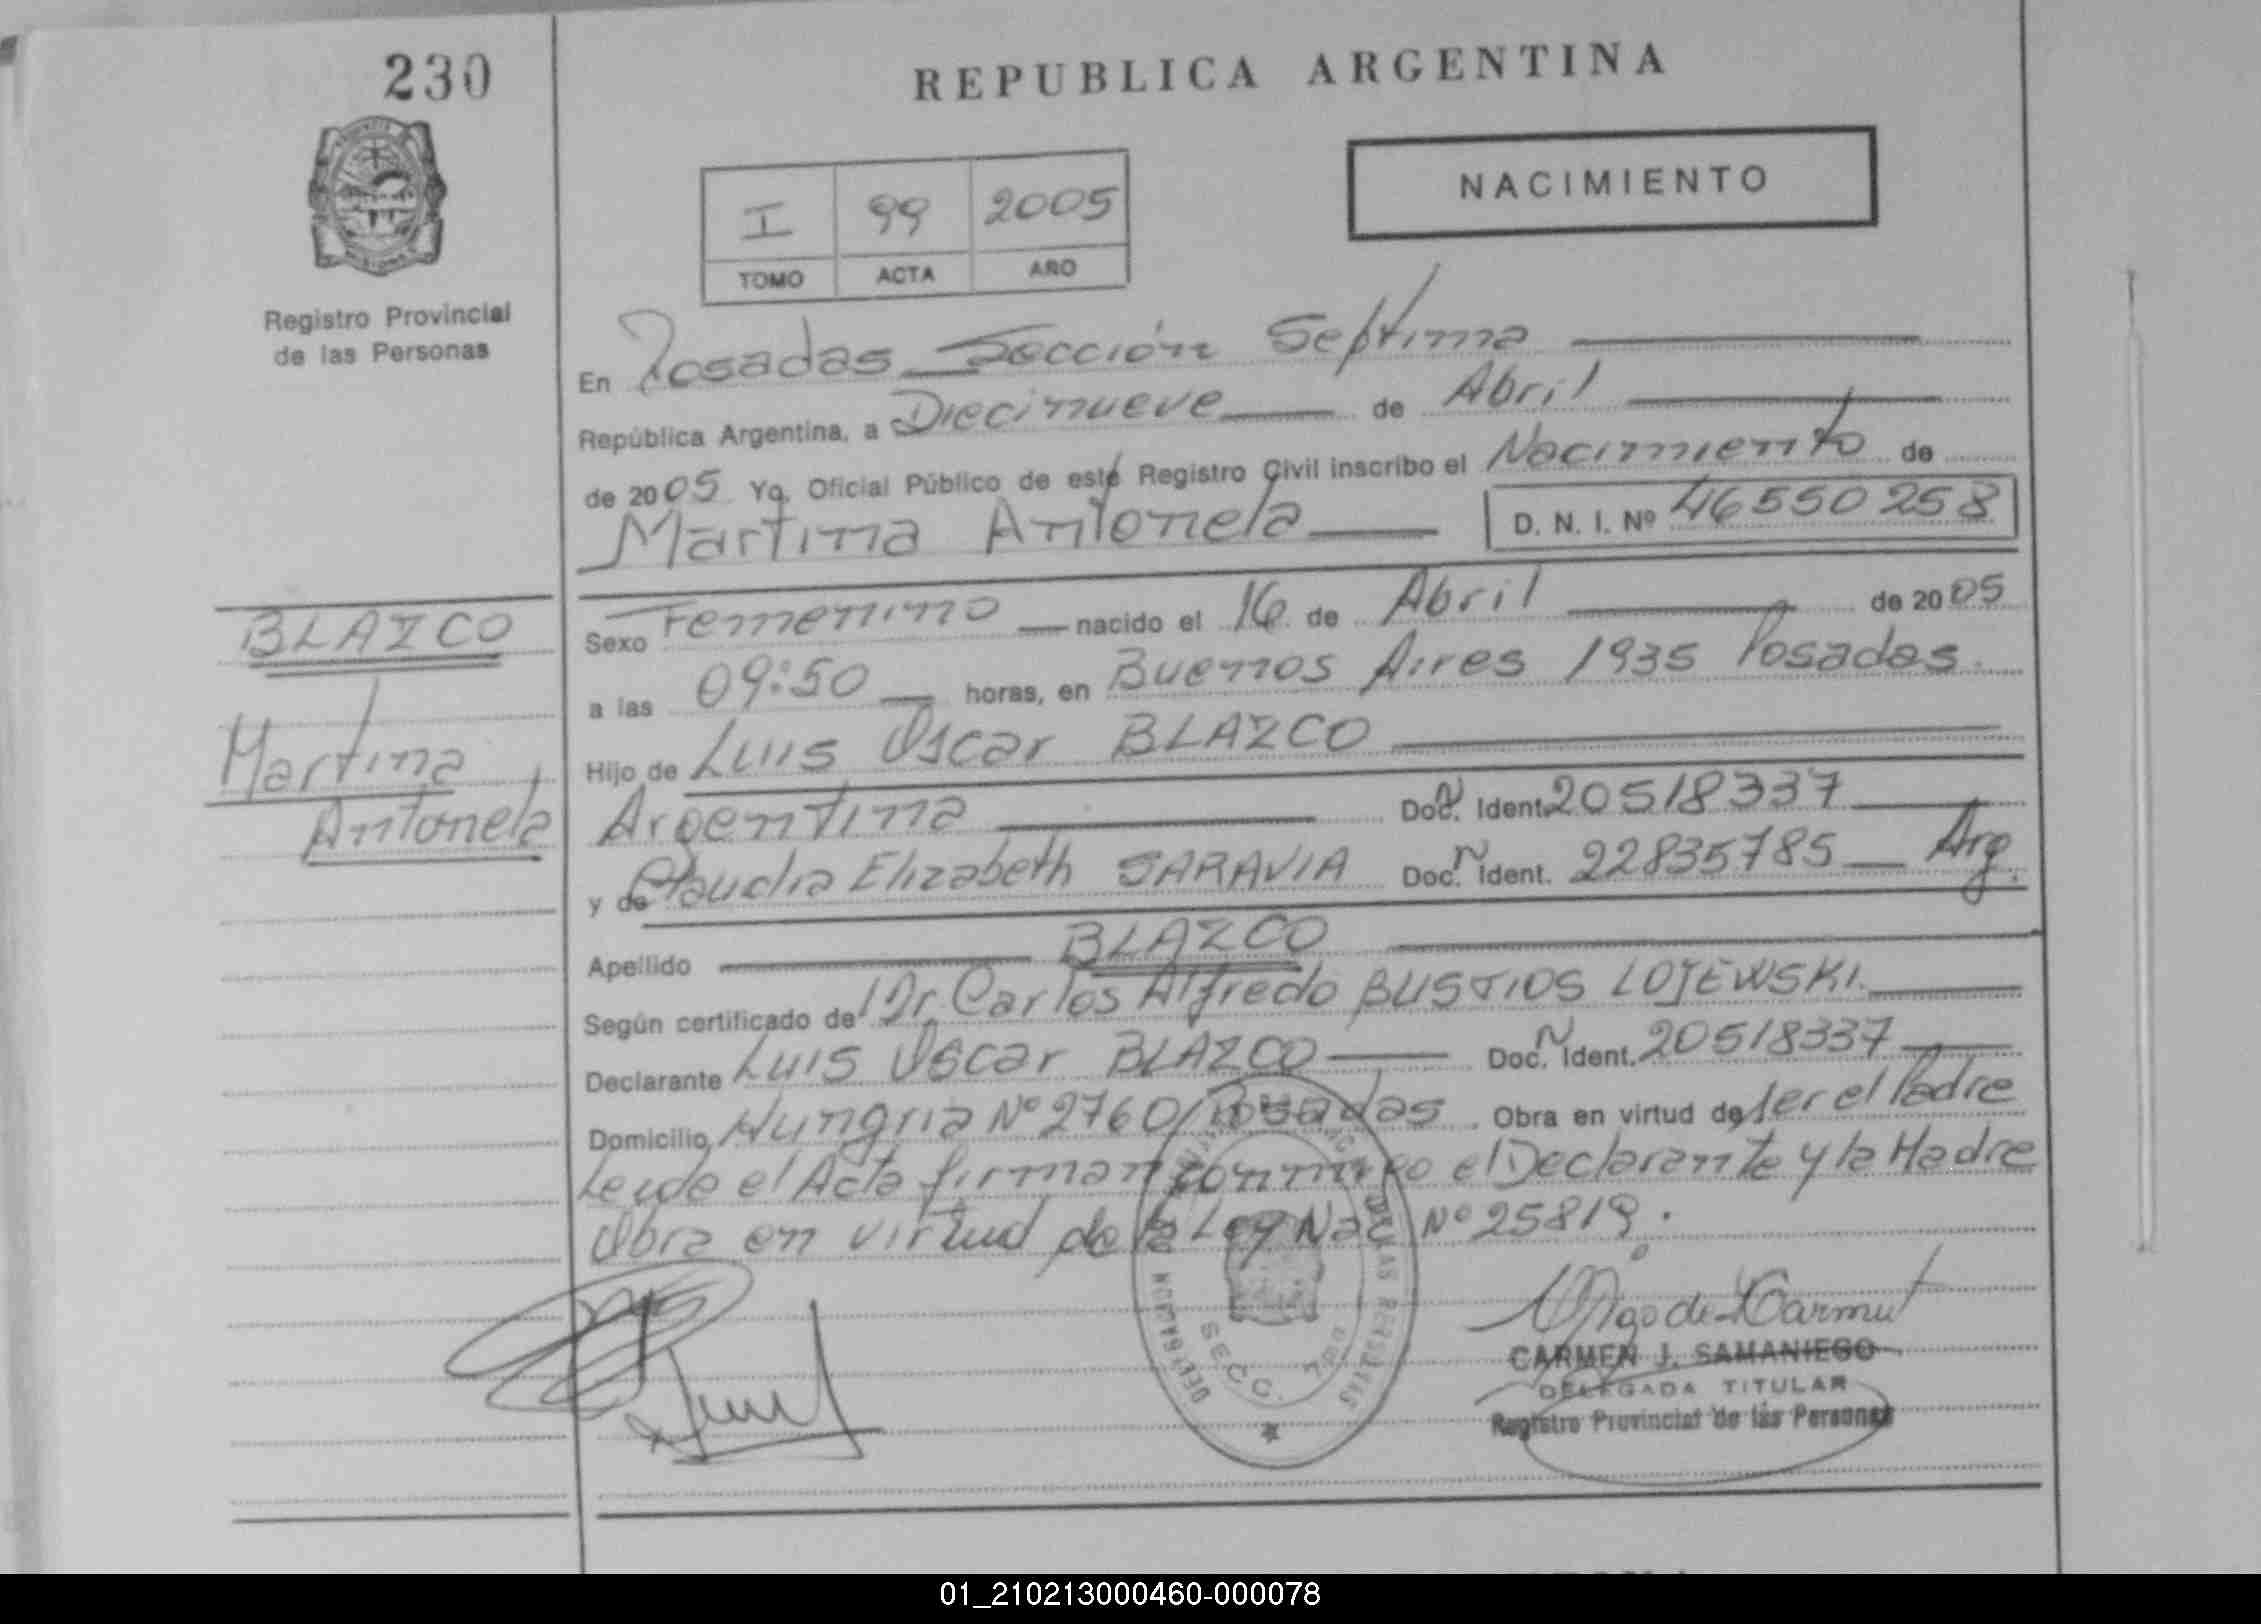 230
REPUBLICA ARGENTINA
NACIMIENTO
I 99 2005
TOMO ACTA AÑO
Registro Provincial
de las Personas
En Posadas Sección Septima
República Argentina, a Diecinueve de Abril
de 2005 Yo, Oficial Público de este Registro Civil inscribo el Nacimiento de
Martina Antonela D. N. I. Nº 46550258
BLAZCO
Martina
Antonela
Sexo Femenino nacido el 16 de Abril de 2005
a las 09:50 horas, en Buenos Aires 1935 Posadas
Hijo de Luis Oscar BLAZCO
Argentina Doc. Ident. 20518337
y de Claudia Elizabeth SARAVIA Doc. Ident. 22835785 Arg.
Apellido BLAZCO
Según certificado de Dr. Carlos Alfredo BUSTIOS LOJEWSKI.
Declarante Luis Oscar BLAZCO Doc. Ident. 20518337
Domicilio Hungria Nº 2760 Posadas. Obra en virtud de ser el Padre
Leida el Acta firman conmigo el Declarante y la Madre
Obra en virtud de la Ley Nac Nº 25819.
SECC. 7
CARMEN J. SAMANIEGO
DELEGADA TITULAR
Registro Provincial de las Personas
01_210213000460-000078